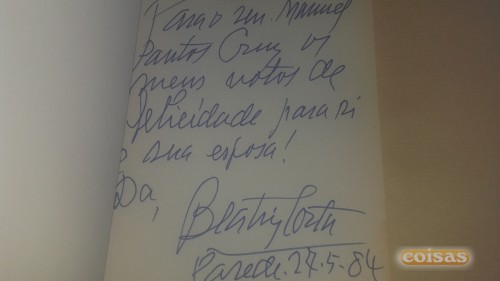 Para o sr. Manuel
Santos Cruz os
meus votos de
felicidade para si
e sua esposa!
Da,
Beatriz Costa
Parede. 27-5-84
coisas